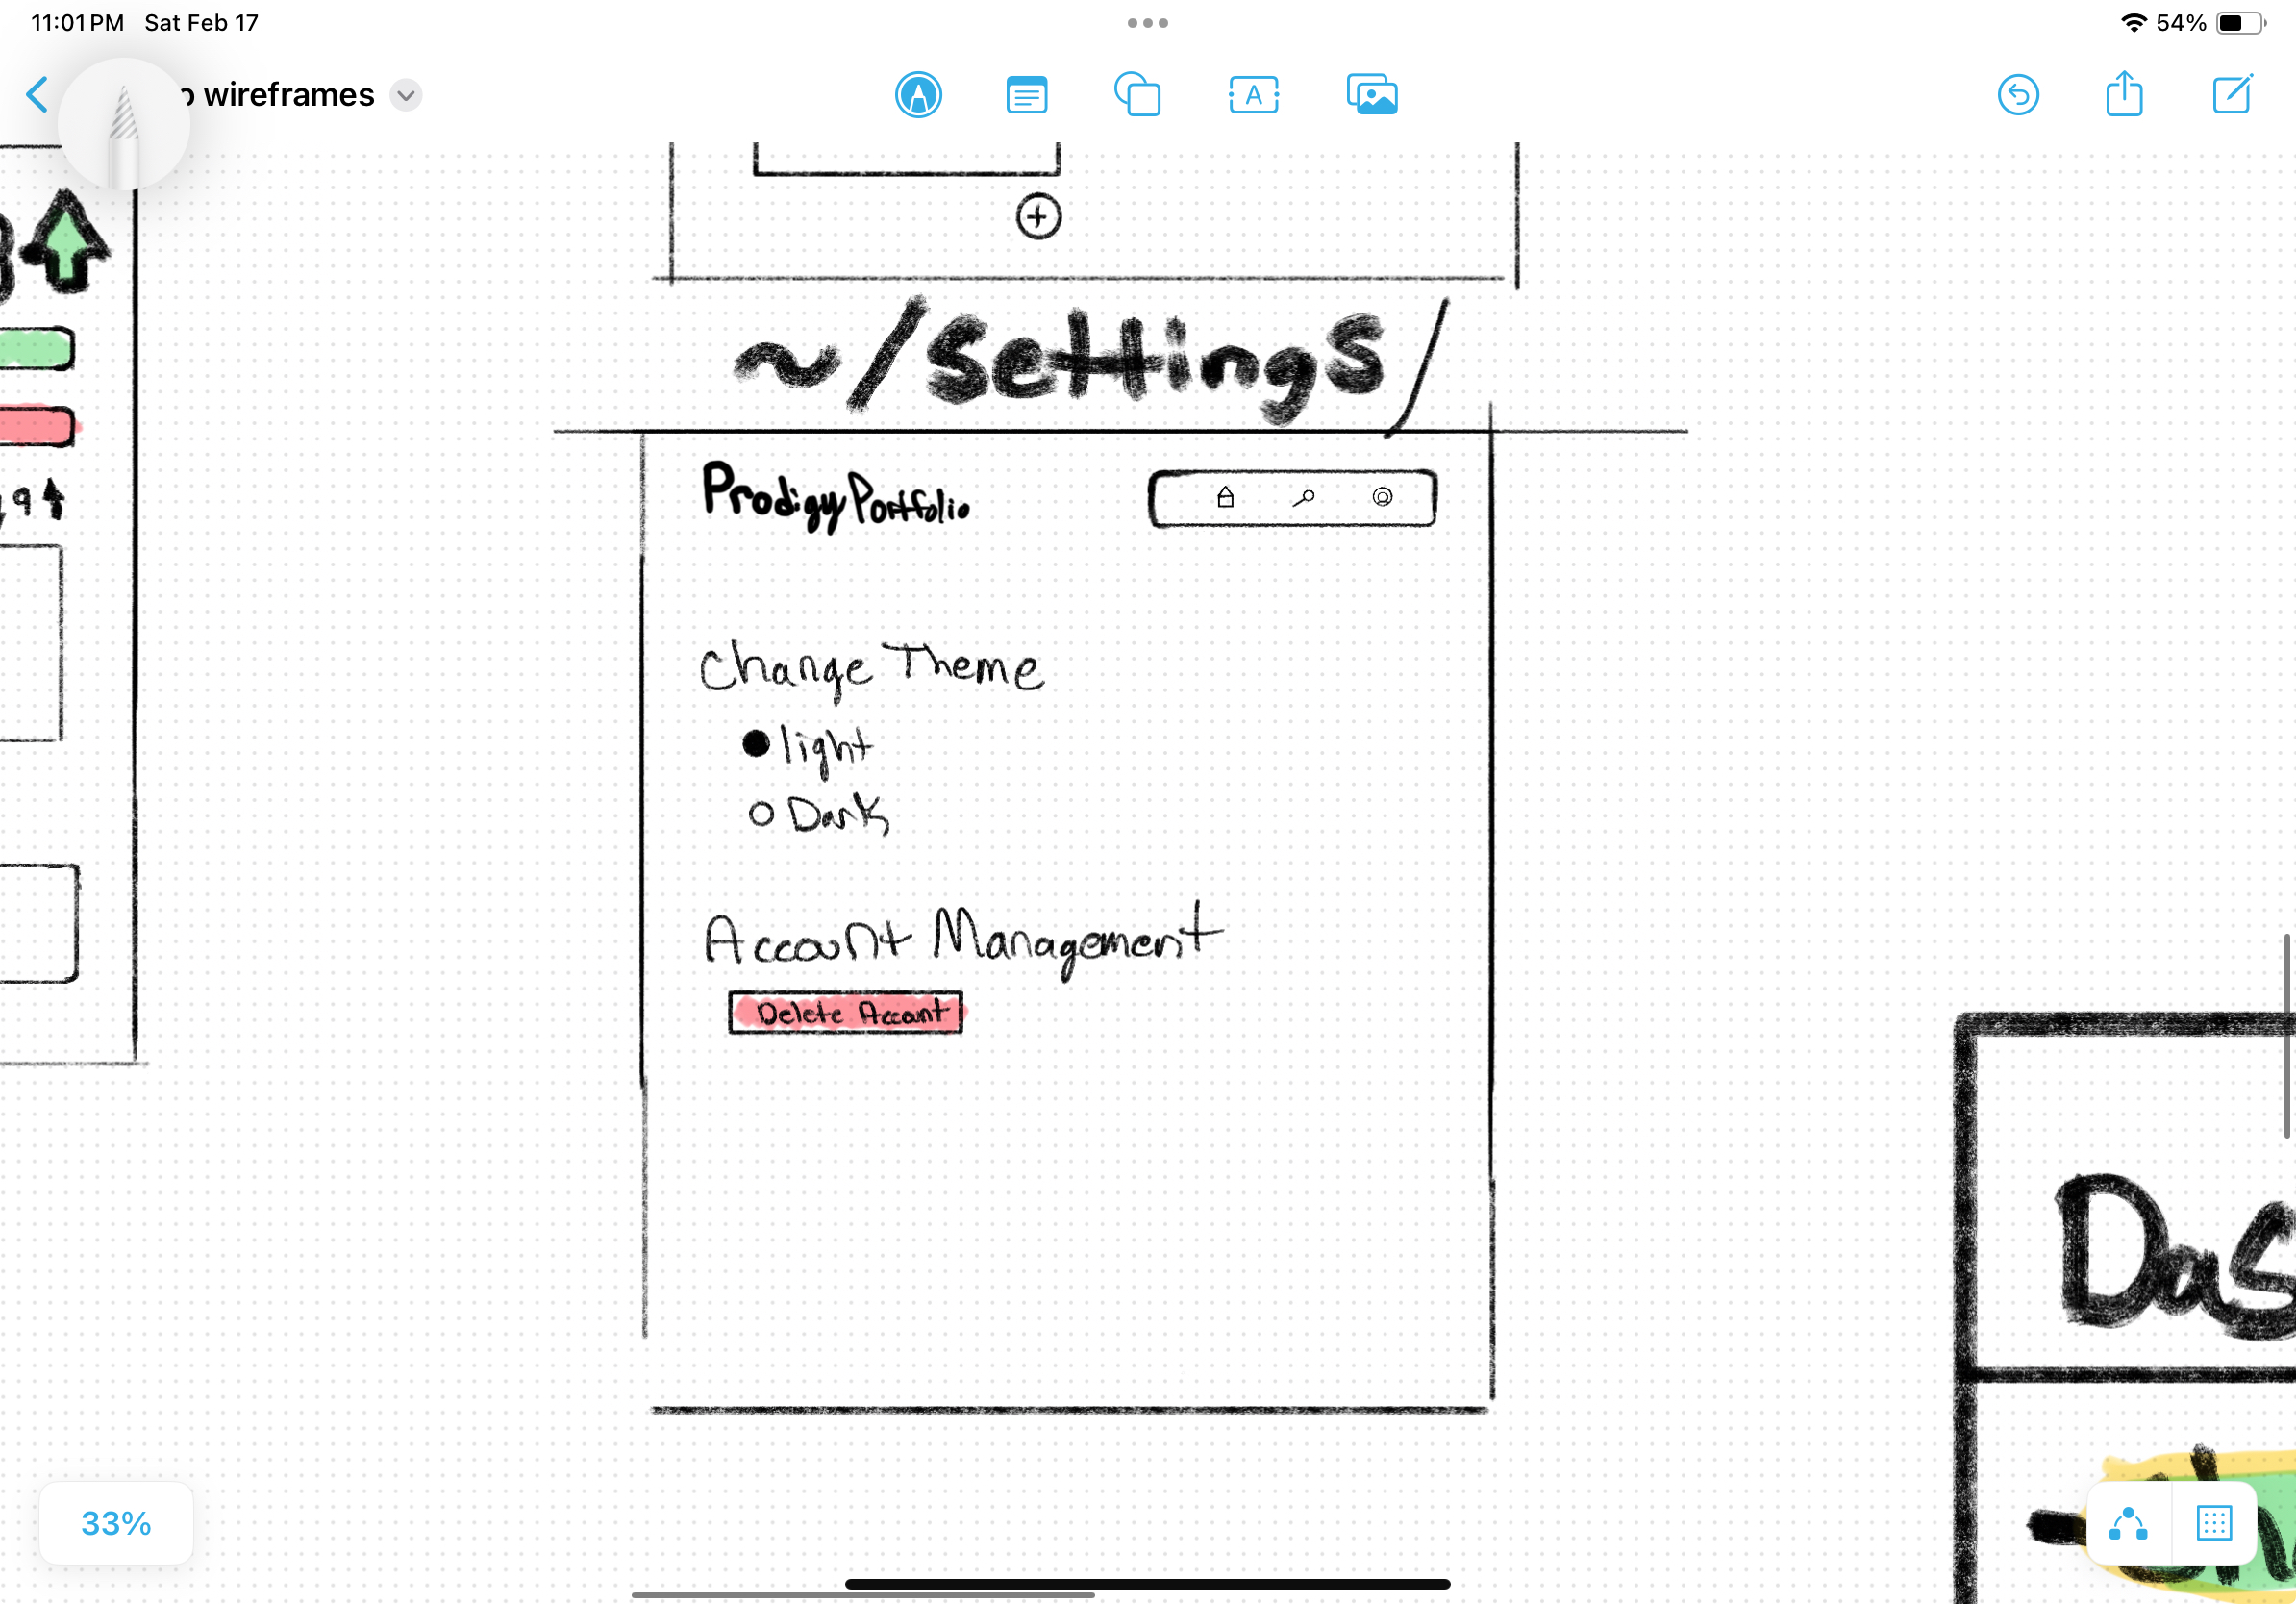 11:01 PM Sat Feb 17
54%
o wireframes
A
~/settings/
9
Prodigy Portfolio
Change Theme
light
Dark
Account Management
Delete Account
Das
33%